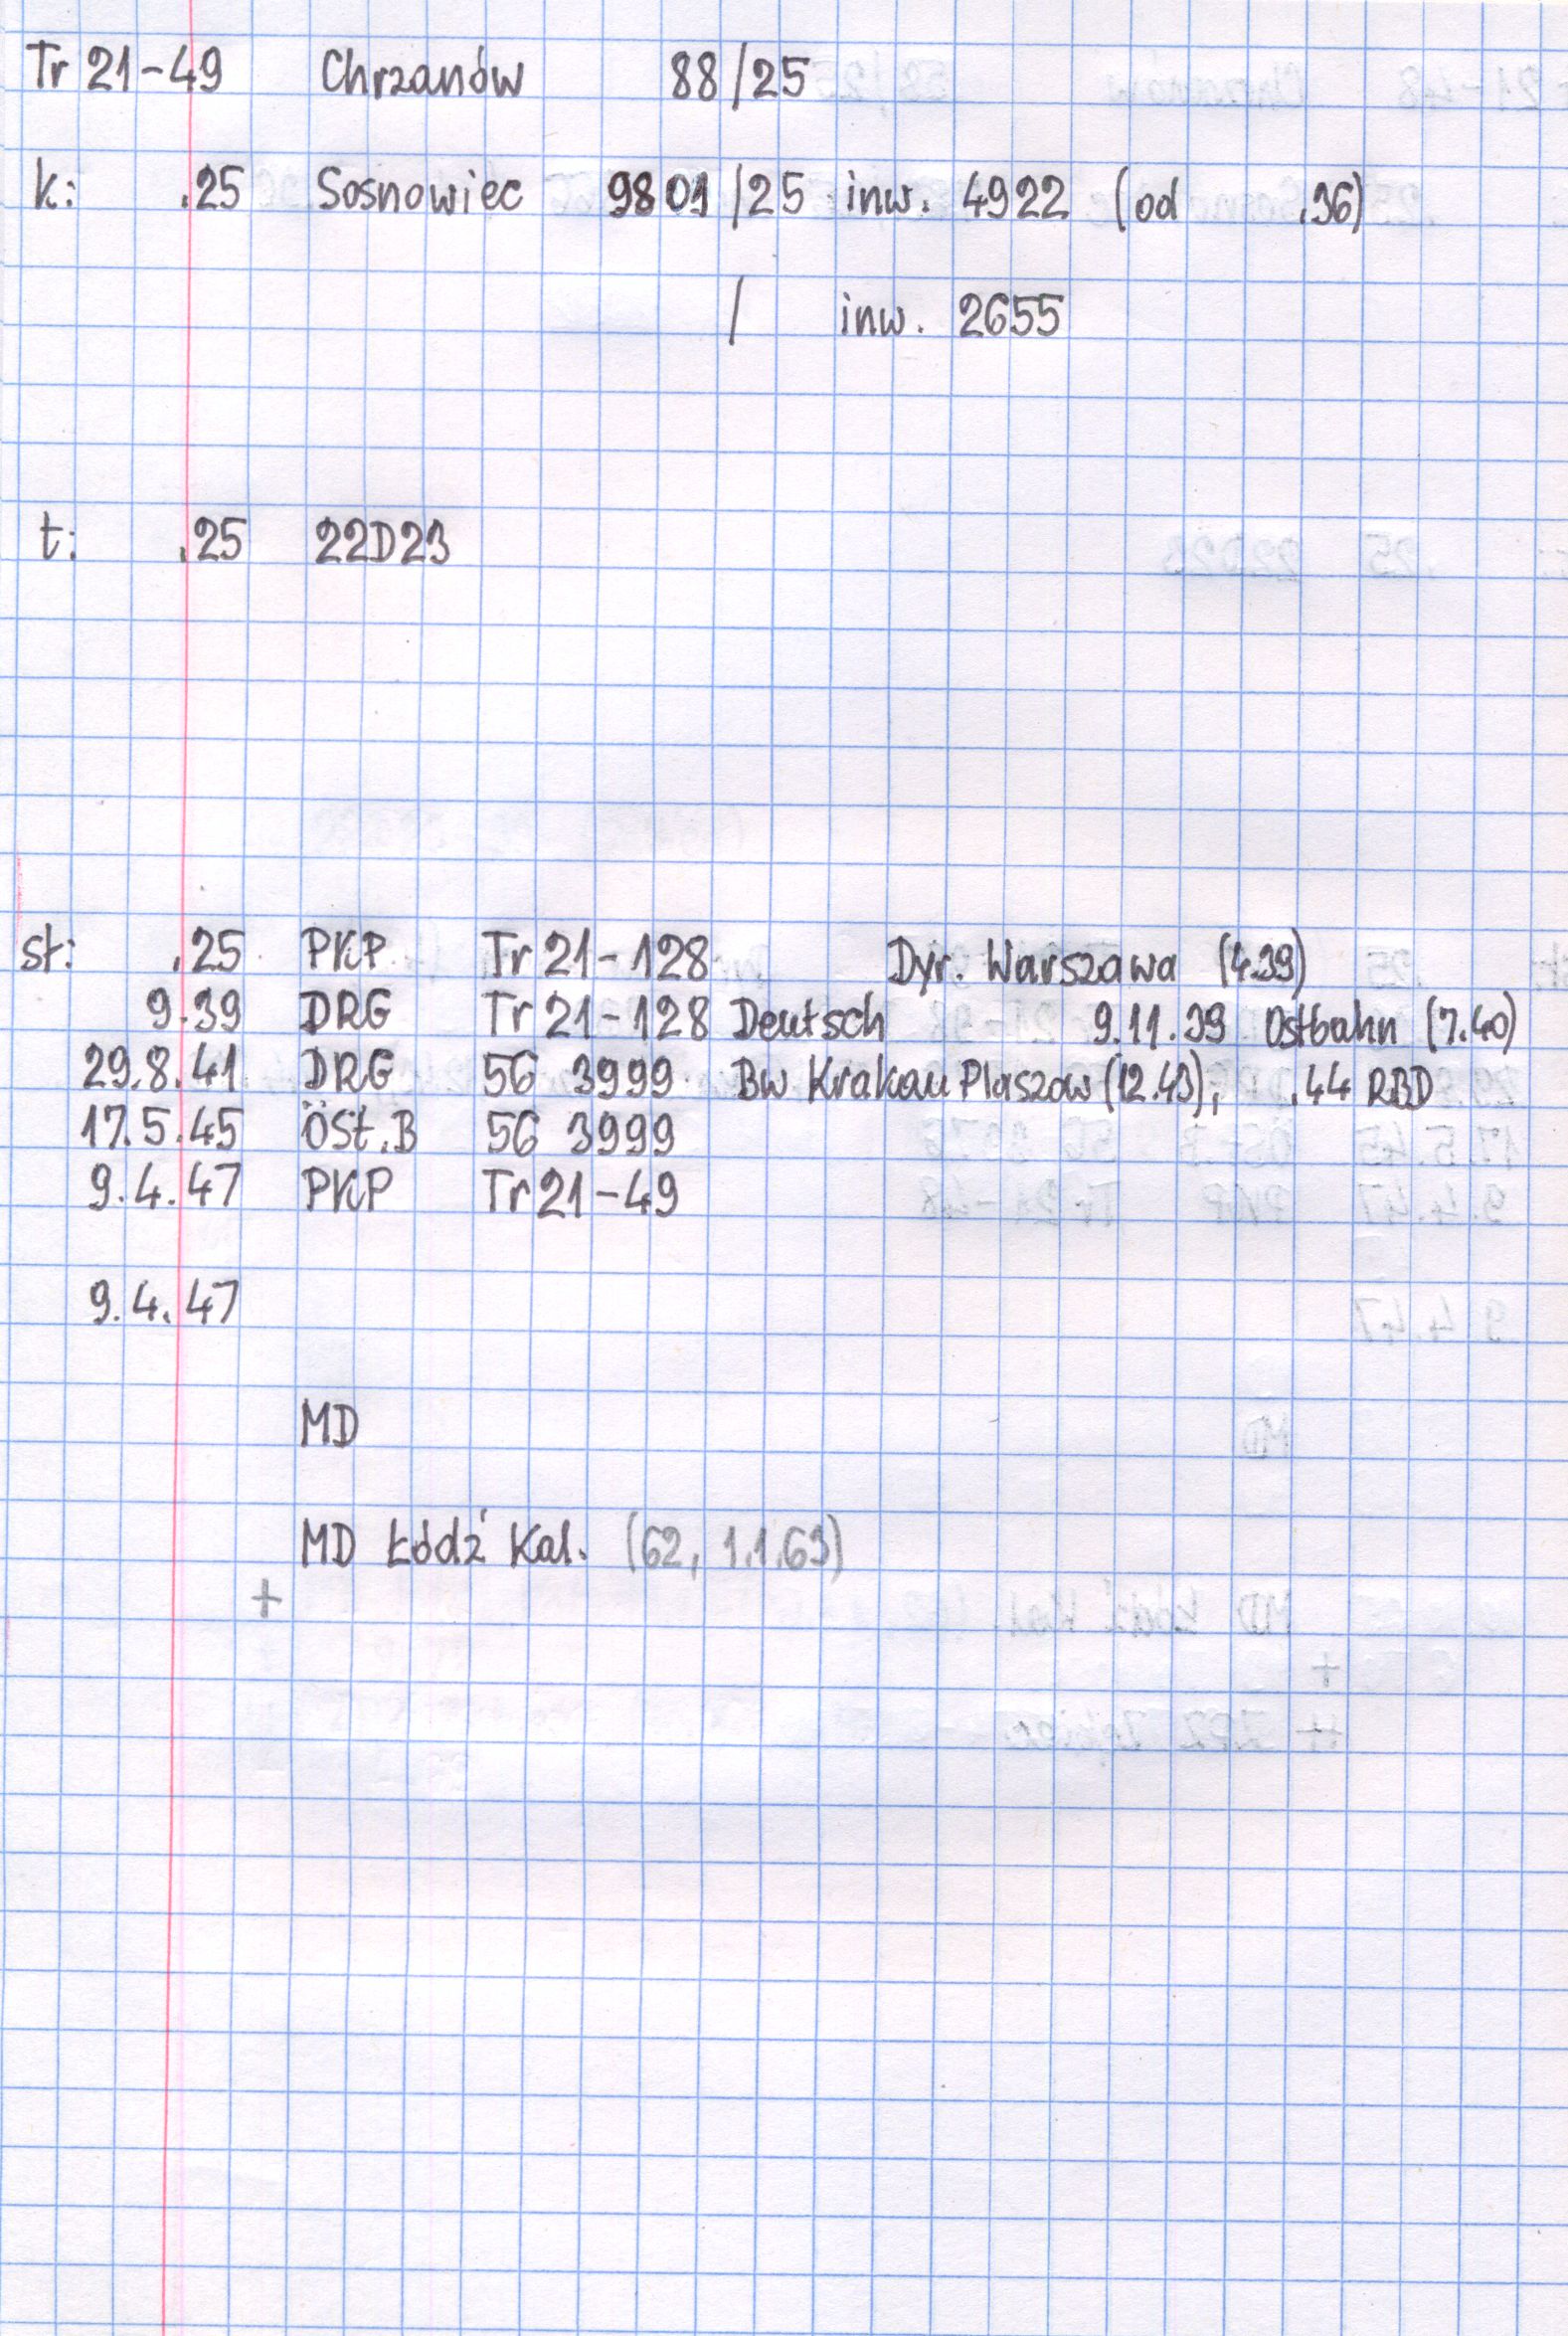 Tr 21-49 Chrzanów 88/25
k: .25 Sosnowiec 9801/25 inw. 4922 (od .36)
/ inw. 2655
t: .25 22D23
st: .25 PKP Tr 21-128 Dyr. Warszawa (4.39)
9.39 DRG Tr 21-128 Deutsch 9.11.39 Ostbahn (7.40)
29.8.41 DRG 56 3999 Bw Krakau Plaszow (12.43), .44 RBD
17.5.45 ÖSt.B 56 3999
9.4.47 PKP Tr 21-49
9.4.47
MD
MD Łódź Kal. (62, 1.1.63)
+